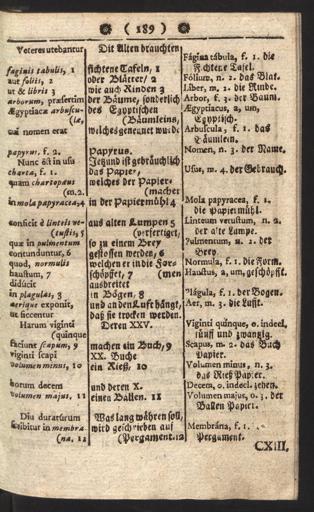 ( 189 )
Veteres utebantur
faginis tabulis, 1
aut foliis, 2
ut & libris 3
arborum, præsertim
Ægyptiacæ arbuscu-
(læ,
cui nomen erat
papyrus. f. 2.
Nunc est in usu
charta, f. 1.
quam chartopæus
(m. 2.
in mola papyracea, 4
conficit è linteis ve-
(tustis, 5
quæ in pulmentum
contunduntur, 6
quod, normulis
haustum, 7
diducit
in plagulas, 8
aerique exponit,
ut siccentur
Harum viginti
(quinque
faciunt scapum, 9
viginti scapi
volumen minus, 10
horum decem
volumen majus, 11
Diu duraturum
scribitur in membra-
(na. 12
Die Alten brauchten
fichtene Tafeln, 1
oder Blätter/ 2
wie auch Rinden 3
der Bäume, sonderlich
des Egyptischen
(Bäumleins,
welches genennet wurde
Papyrus.
Jetzund ist gebräuchlich
das Papier,
welches der Papier-
(macher
in der Papiermühl 4
aus alten Lumpen 5
(verfertiget,
so zu einem Brey
gestossen werden, 6
welchen er in die For-
schöpffet, 7 (men
ausbreitet
in Bögen, 8
und an den Luft hängt,
daß sie trocken werden.
Deren XXV.
machen ein Buch, 9
XX. Buche
ein Rieß, 10
und deren X.
einen Ballen. 11
Was lang währen soll,
wird geschrieben auf
(Pergament. 12
Fágina tábula, f. 1. die
Fichtene Tafel.
Fólium, n. 2. das Blat.
Liber, m. 2. die Rinde.
Arbor, f. 3. der Baum.
Ægyptiacus, a, um,
Egyptisch.
Arbuscula, f. 1. das
Bäumlein.
Nomen, n. 3. der Name.
Usus, m. 4. der Gebrauch.
Mola papyracea, f. 1.
die Papiermühl.
Linteum vetustum, n. 2.
der alte Lumpe.
Pulmentum, n. 2. der
Brey
Normula, f. 1. die Form.
Haustus, a, um, geschöpft.
Plágula, f. 1. der Bogen.
Aer, m. 3. die Luft.
Viginti quinque, o. indecl.
fünff und zwantzig.
Scapus, m. 2. das Buch
Papier.
Volumen minus, n. 3.
das Rieß Papier.
Decem, o. indecl. zehen.
Volumen majus, n. 3. der
Ballen Papier.
Membrána, f. 1.
Pergament.
CXIII.